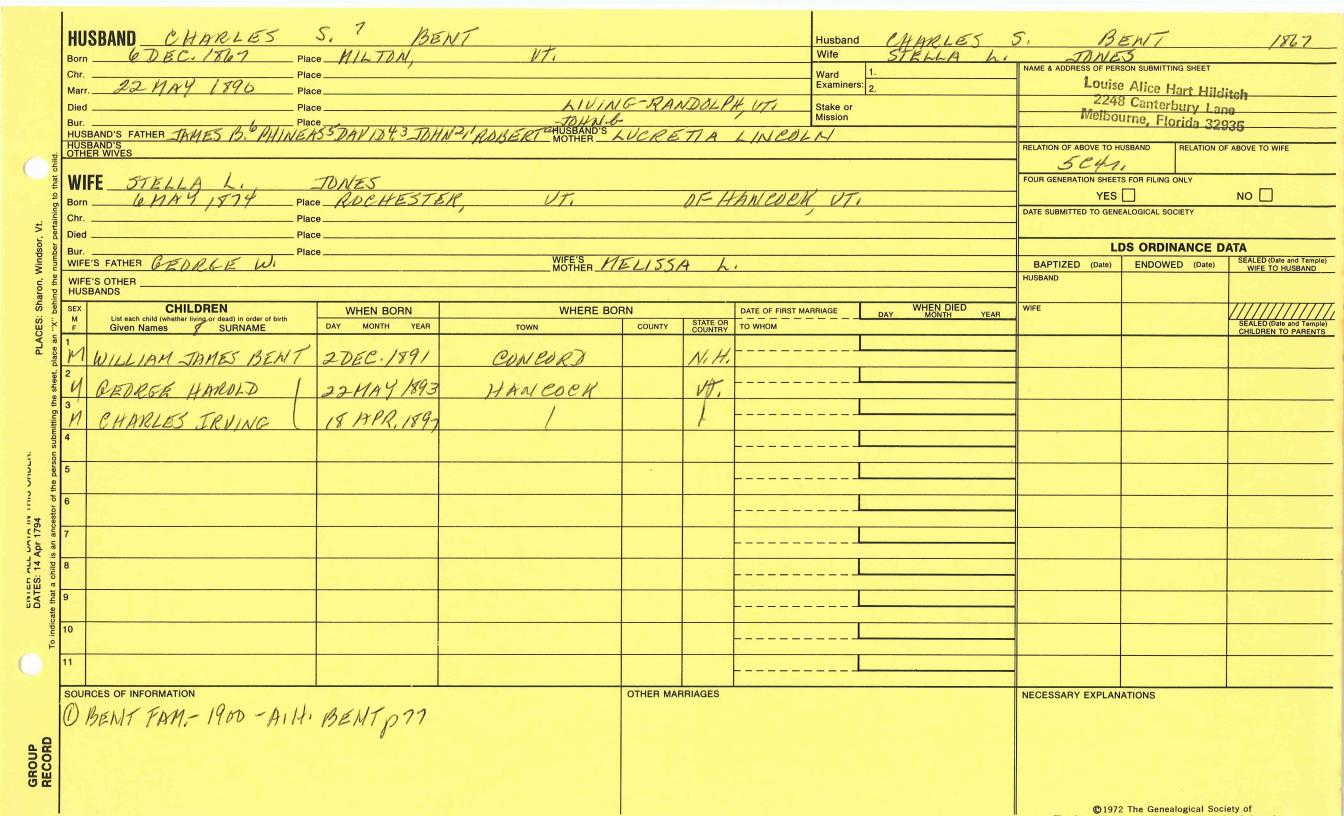 HUSBAND CHARLES S. 7 BENT
Born 6 DEC. 1867 Place MILTON, VT.
Chr. Place
Marr. 22 MAY 1890 Place
Died Place LIVING-RANDOLPH, VT.
Bur. Place JOHN.6
HUSBAND'S FATHER JAMES B.6 PHINEAS5 DAVID4.3 JOHN2,1 ROBERT HUSBAND'S MOTHER LUCRETIA LINCOLN
HUSBAND'S OTHER WIVES
WIFE STELLA L. JONES
Born 6 MAY 1874 Place ROCHESTER, VT. OF HANCOCK, VT.
Chr. Place
Died Place
Bur. Place
WIFE'S FATHER GEORGE W. WIFE'S MOTHER MELISSA L.
WIFE'S OTHER HUSBANDS
Husband CHARLES S. BENT 1867
Wife STELLA L. JONES
Ward Examiners: 1.
2.
Stake or Mission
NAME & ADDRESS OF PERSON SUBMITTING SHEET
Louise Alice Hart Hilditch
2248 Canterbury Lane
Melbourne, Florida 32935
RELATION OF ABOVE TO HUSBAND RELATION OF ABOVE TO WIFE
5C4r.
FOUR GENERATION SHEETS FOR FILING ONLY
YES NO
DATE SUBMITTED TO GENEALOGICAL SOCIETY
LDS ORDINANCE DATA
BAPTIZED (Date) ENDOWED (Date) SEALED (Date and Temple) WIFE TO HUSBAND
HUSBAND
WIFE
SEALED (Date and Temple) CHILDREN TO PARENTS
SEX M F
CHILDREN
List each child (whether living or dead) in order of birth
Given Names 8 SURNAME
WHEN BORN
DAY MONTH YEAR
WHERE BORN
TOWN COUNTY STATE OR COUNTRY
DATE OF FIRST MARRIAGE
TO WHOM
WHEN DIED
DAY MONTH YEAR
1 M WILLIAM JAMES BENT 2 DEC. 1891 CONCORD N.H.
2 M GEORGE HAROLD 22 MAY 1893 HANCOCK VT.
3 M CHARLES IRVING 18 APR. 1897
4
5
6
7
8
9
10
11
SOURCES OF INFORMATION
① BENT FAM.- 1900 - A.H. BENT p77
OTHER MARRIAGES
NECESSARY EXPLANATIONS
©1972 The Genealogical Society of
PLACES: Sharon, Windsor, Vt.
To indicate that a child is an ancestor of the person submitting the sheet, place an "X" behind the number pertaining to that child.
ENTER ALL DATA IN THIS ORDER:
DATES: 14 Apr 1794
GROUP RECORD